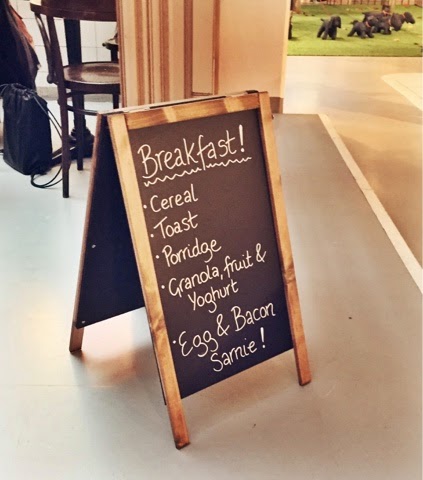 Breakfast!
· Cereal
· Toast
· Porridge
· Granola, fruit &
Yoghurt
· Egg & Bacon
Sarnie!